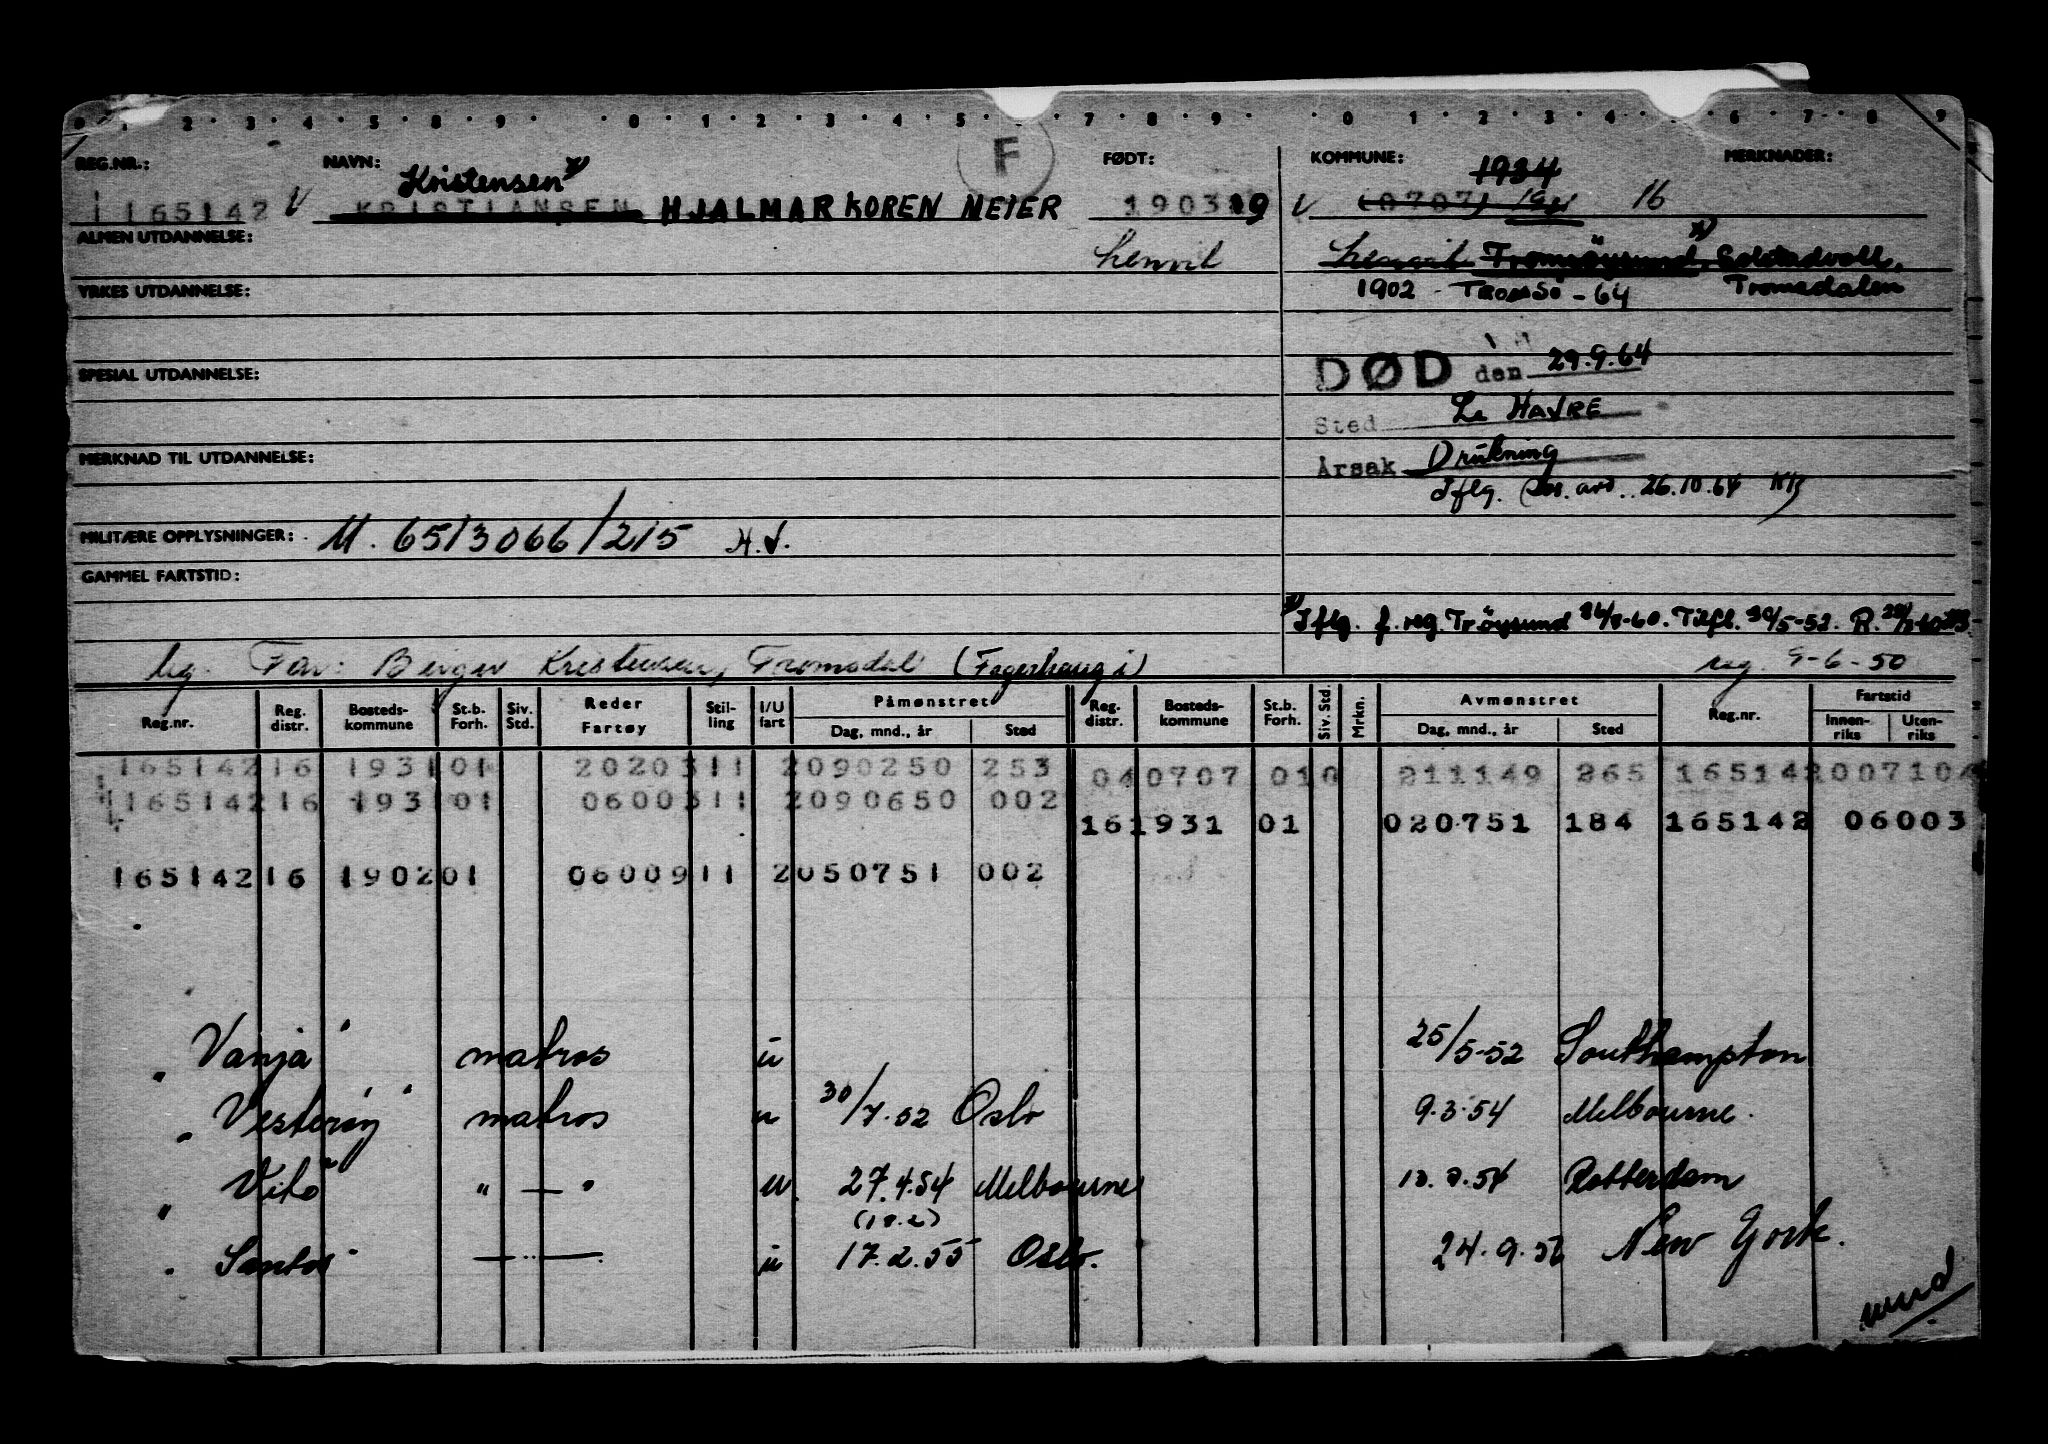 0 1 2 3 4 5 8 9 0 1 2 3 4 5 7 8 9 0 1 2 3 4 6 7 8 9
REG.NR.: NAVN: Kristensen x) F FØDT: KOMMUNE: 1934 MERKNADER:
165142 V KRISTIANSEN HJALMAR KOREN MEIER 1903 9 V (0707) 16
ALMEN UTDANNELSE: Lenvik Lenvik Tromsöysund, x) Solstadvoll,
YRKES UTDANNELSE: 1902 - TROMSÖ - 64 Tromsdalen
DØD den 29.9.64
SPESIAL UTDANNELSE:
Sted Le HAVRE
MERKNAD TIL UTDANNELSE: Årsak Drukning
Iflg. 26.10.64
MILITÆRE OPPLYSNINGER: M. 6513066/215 H.V.
GAMMEL FARTSTID:
x) Iflg. f. reg. Tröysund Tilfl. 30/5-52. R.
Far: Birger Kristensen, Tromsdal (Fagerhaug i) reg. 9-6-50
Reg.nr. Reg. distr. Bosteds- kommune St.b. Forh. Siv. Std. Reder Fartøy Stil- ling I/U fart Påmønstret Dag, mnd., år Sted Reg. distr. Bosteds- kommune St.b. Forh. Siv. Std. Mrkn. Avmønstret Dag, mnd., år Sted Reg.nr. Fartstid Innen- riks Uten- riks
165142 16 1931 01 2020311 2090250 253 04 0707 01 0 211149 265 165142 007104
165142 16 1931 01 0600311 2090650 002
16 1931 01 020751 184 165142 06003
165142 16 1902 01 0600911 2050751 002
"Vanja" matros u 25/5-52 Southampton
"Vesterøy" matros u 30/7.52 Oslo 9.3.54 Melbourne.
"Vito" " — " u 27.4.54 Melbourne Rotterdam
"Santos" — " — u 17.2.55 Oslo. 24.9.56 New York.